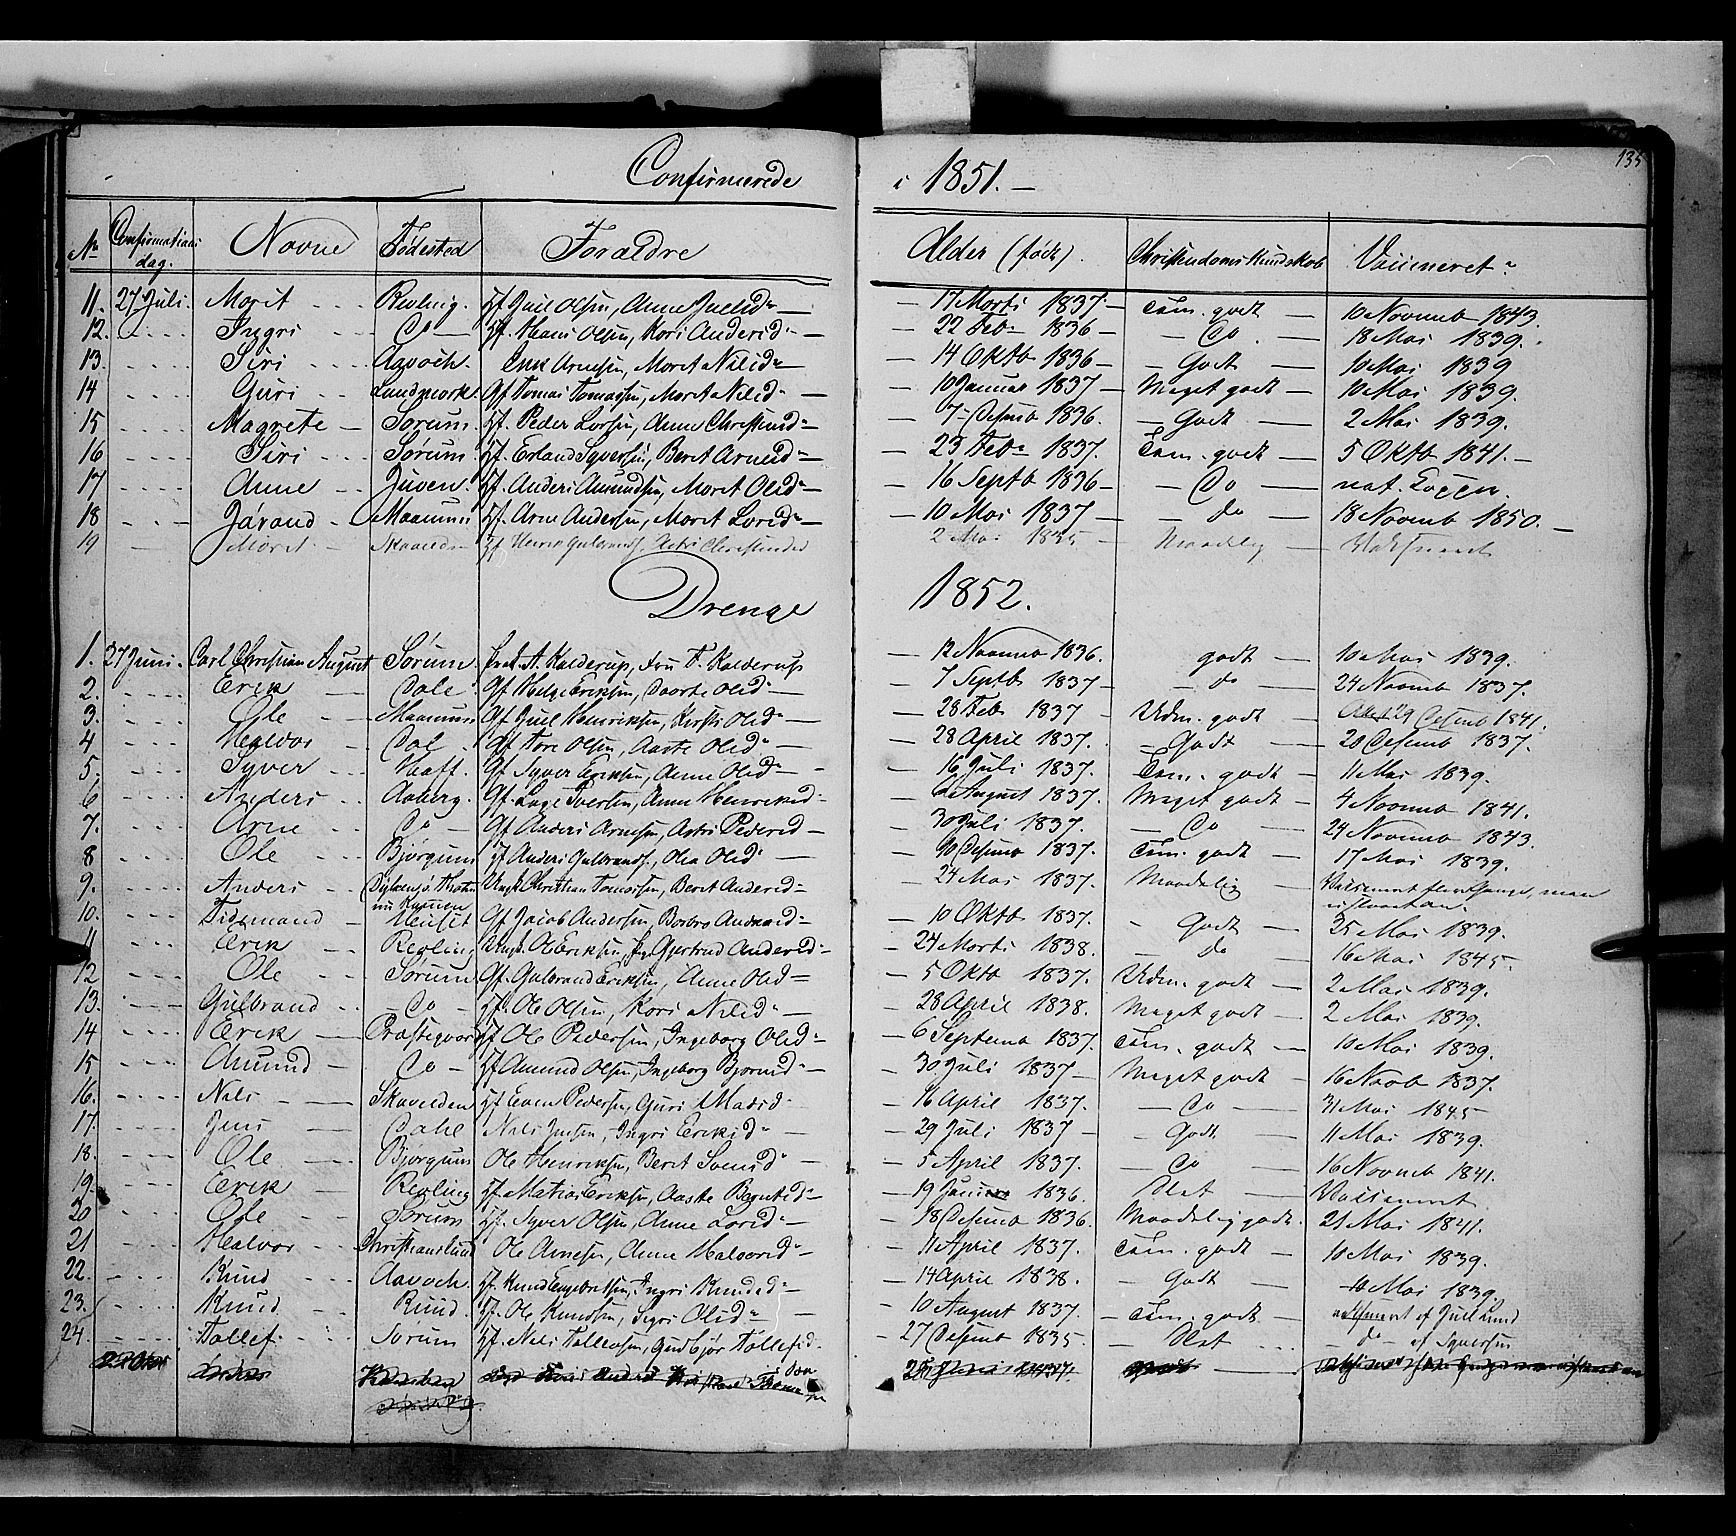 135
Confirmerede i 1851. —
No Confirmations dag. Navne Fødested Forældre Alder (født). Christendoms Kundskab Vaccineret
11. 27 Juli. Marit Revling. Gf. Juel Olsen, Anne — 17 Marti 1837 — Tem. godt — 10 Novemb 1843.
12. Ingri Do — Hans Olsen, Kari Andersd — 22 Feb 1836 — Do — 18 Mai 1839.
13. Siri Aavoch. Erik Arnesen, Marit Nilsd — 14 Oktb 1836 — Godt — 10 Mai 1839
14 Guri Landmark. Gf Tomas Tomassen, Marit Nilsd — 10 Januar 1837 — Meget godt — 10 Mai 1839.
15 Magrete — Sørum. Gf. Peder Larsen, Anne Christensd — 7 Desmb 1836. — Godt — 2 Mai 1839.
16 Siri Sørum. Gf. Erland Syversen, Berit Arnesd — 23 Feb 1837. Tem. godt — 5 Oktb 1841. —
17 Anne Juven. Gf. Anders Amundsen, Marit Olsd — 16 Septb 1836 — Do — nat.
18 Jørand Maanum Gf. Arne Andersen, Marit Larsd — 10 Mai 1837 — do — 18 Novemb 1850. —
19 Marit Gf Henrik Gulbrands. Astri Christensd 2 Mai 1835 Maadelig —
Drenge 1852.
1. 27 Juni. Carl Christian August Sørum A. Kalderup, Fru F. Kalderup — 12 Novemb 1836. godt — 10 Mai 1839.
2. Erik Dale Gf Helge Eriksen, Olsd — 7 Septb 1837 — do — 24 Novemb 1837.
3. Ole Maanum Gf Juel Henriksen, Kirsti Olsd — 28 Feb 1837 — Udm. godt — 29 Desmb 1841.
4 Halvor Dal Gf Tore Olsen, Aaste Olsd — 28 April 1837. — Godt — 20 Desemb 1837.
5. Syver Haff. Gf Syver Eriksen, Anne Olsd — 16 Juli 1837. Tem. godt — 11 Mai 1839.
6 Anders Aaberg. Gf. Lage Iversen, Anne Henriksd — 6 August 1837. Meget godt — 4 Novemb 1841.
7. Arne Do — Gf Anders Arnesen, Astri Pedersd — 30 Juli 1837. — Do — 24 Novemb 1843.
8 Ole Bjørgum Gf Anders Gulbrands., Olea Olsd — 10 Desmb 1837. Tem. godt — 17 Mai 1839.
9. Anders Ungk. Christian Tomassen, Berit Andersd — 24 Mai 1837. Maadelig Vaccineret flere gange, men
10. Tidemand Heuset Gf Jacob Andersen, Barbro Andersd — 10 Oktb 1837. — Godt — 25 Mai 1839.
11 Erik Revling Ungk. Ol Eriksen, Pg. Gjertrud Andersd — 24 Marti 1838. — do — 16 Mai 1845.
12 Ole Sørum Gf. Gulbrand Eriksen, Anne Olsd — 5 Oktb 1837. Udm. godt — 2 Mai 1839.
13. Gulbrand Do — Gf. Ole Olsen, Kari Nilsd — 28 April 1838. Meget godt — 2 Mai 1839.
14 Erik — Præstegaard Gf Ole Pedersen, Ingeborg Olsd — 6 Septemb 1837. Tem. godt — 10 Mai 1839.
15 Amund — Do — Gf Amund Olsen, Ingeborg Bjørnsd — 30 Juli 1837 — Meget godt — 16 Novb 1837.
16. Nils — Skavelden Gf Even Pedersen, Guri Madsd — 16 April 1837. — Do — 31 Mai 1845
17. Jens — Dahl Nils Jensen, Ingri Eriksd — 29 Juli 1837 — Godt — 11 Mai 1839.
18. Ole — Bjørgum Ole Henriksen, Berit Svensd — 5 April 1837. — Do — 16 Novemb 1841.
19. Erik — Revling Gf. Matias Eriksen, Aaste Berntsd — 19 Januar 1836. Slet — Vaccineret
20 Ole — Sørum Gf. Syver Olsen, Anne Larsd — 18 Desemb 1836. Maadelig godt. 21 Mai 1841.
21 Halvor Christianslund Ole Arnesen, Anne Halvorsd — 11 April 1837. Tem. godt — 10 Mai 1839.
22. Knud Aavoch Gf. Knud Engebretsen, Ingri Knudsd — 14 April 1838. — Godt — 10 Mai 1839.
23. Knud Ruud Gf. Ole Knudsen, Sigri Olsd — 10 August 1837. — Tem. godt — af Juel Lund
24. Tollef. Sørum Gf. Nils Tollevsen, Gudbjør Tollefsd. — 27 Desmb 1835 — Slet — do — af Syversen